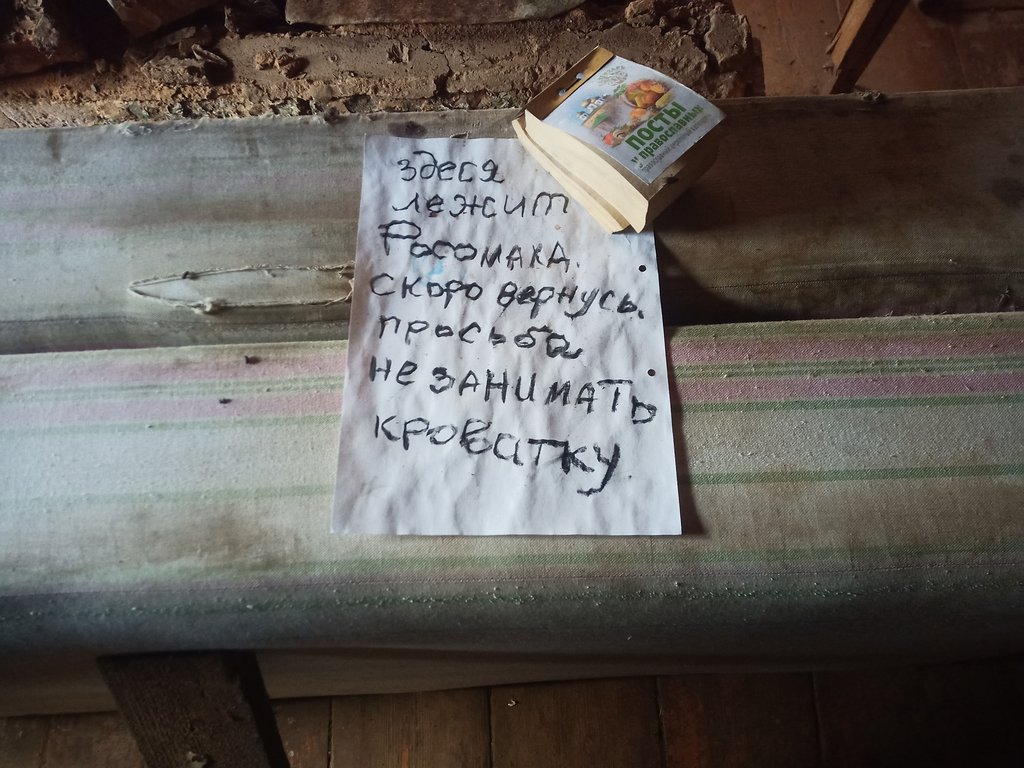 здеся
лежит
Росомаха.
скоро вернусь.
просьба
не занимать
кроватку.
посты
у православных